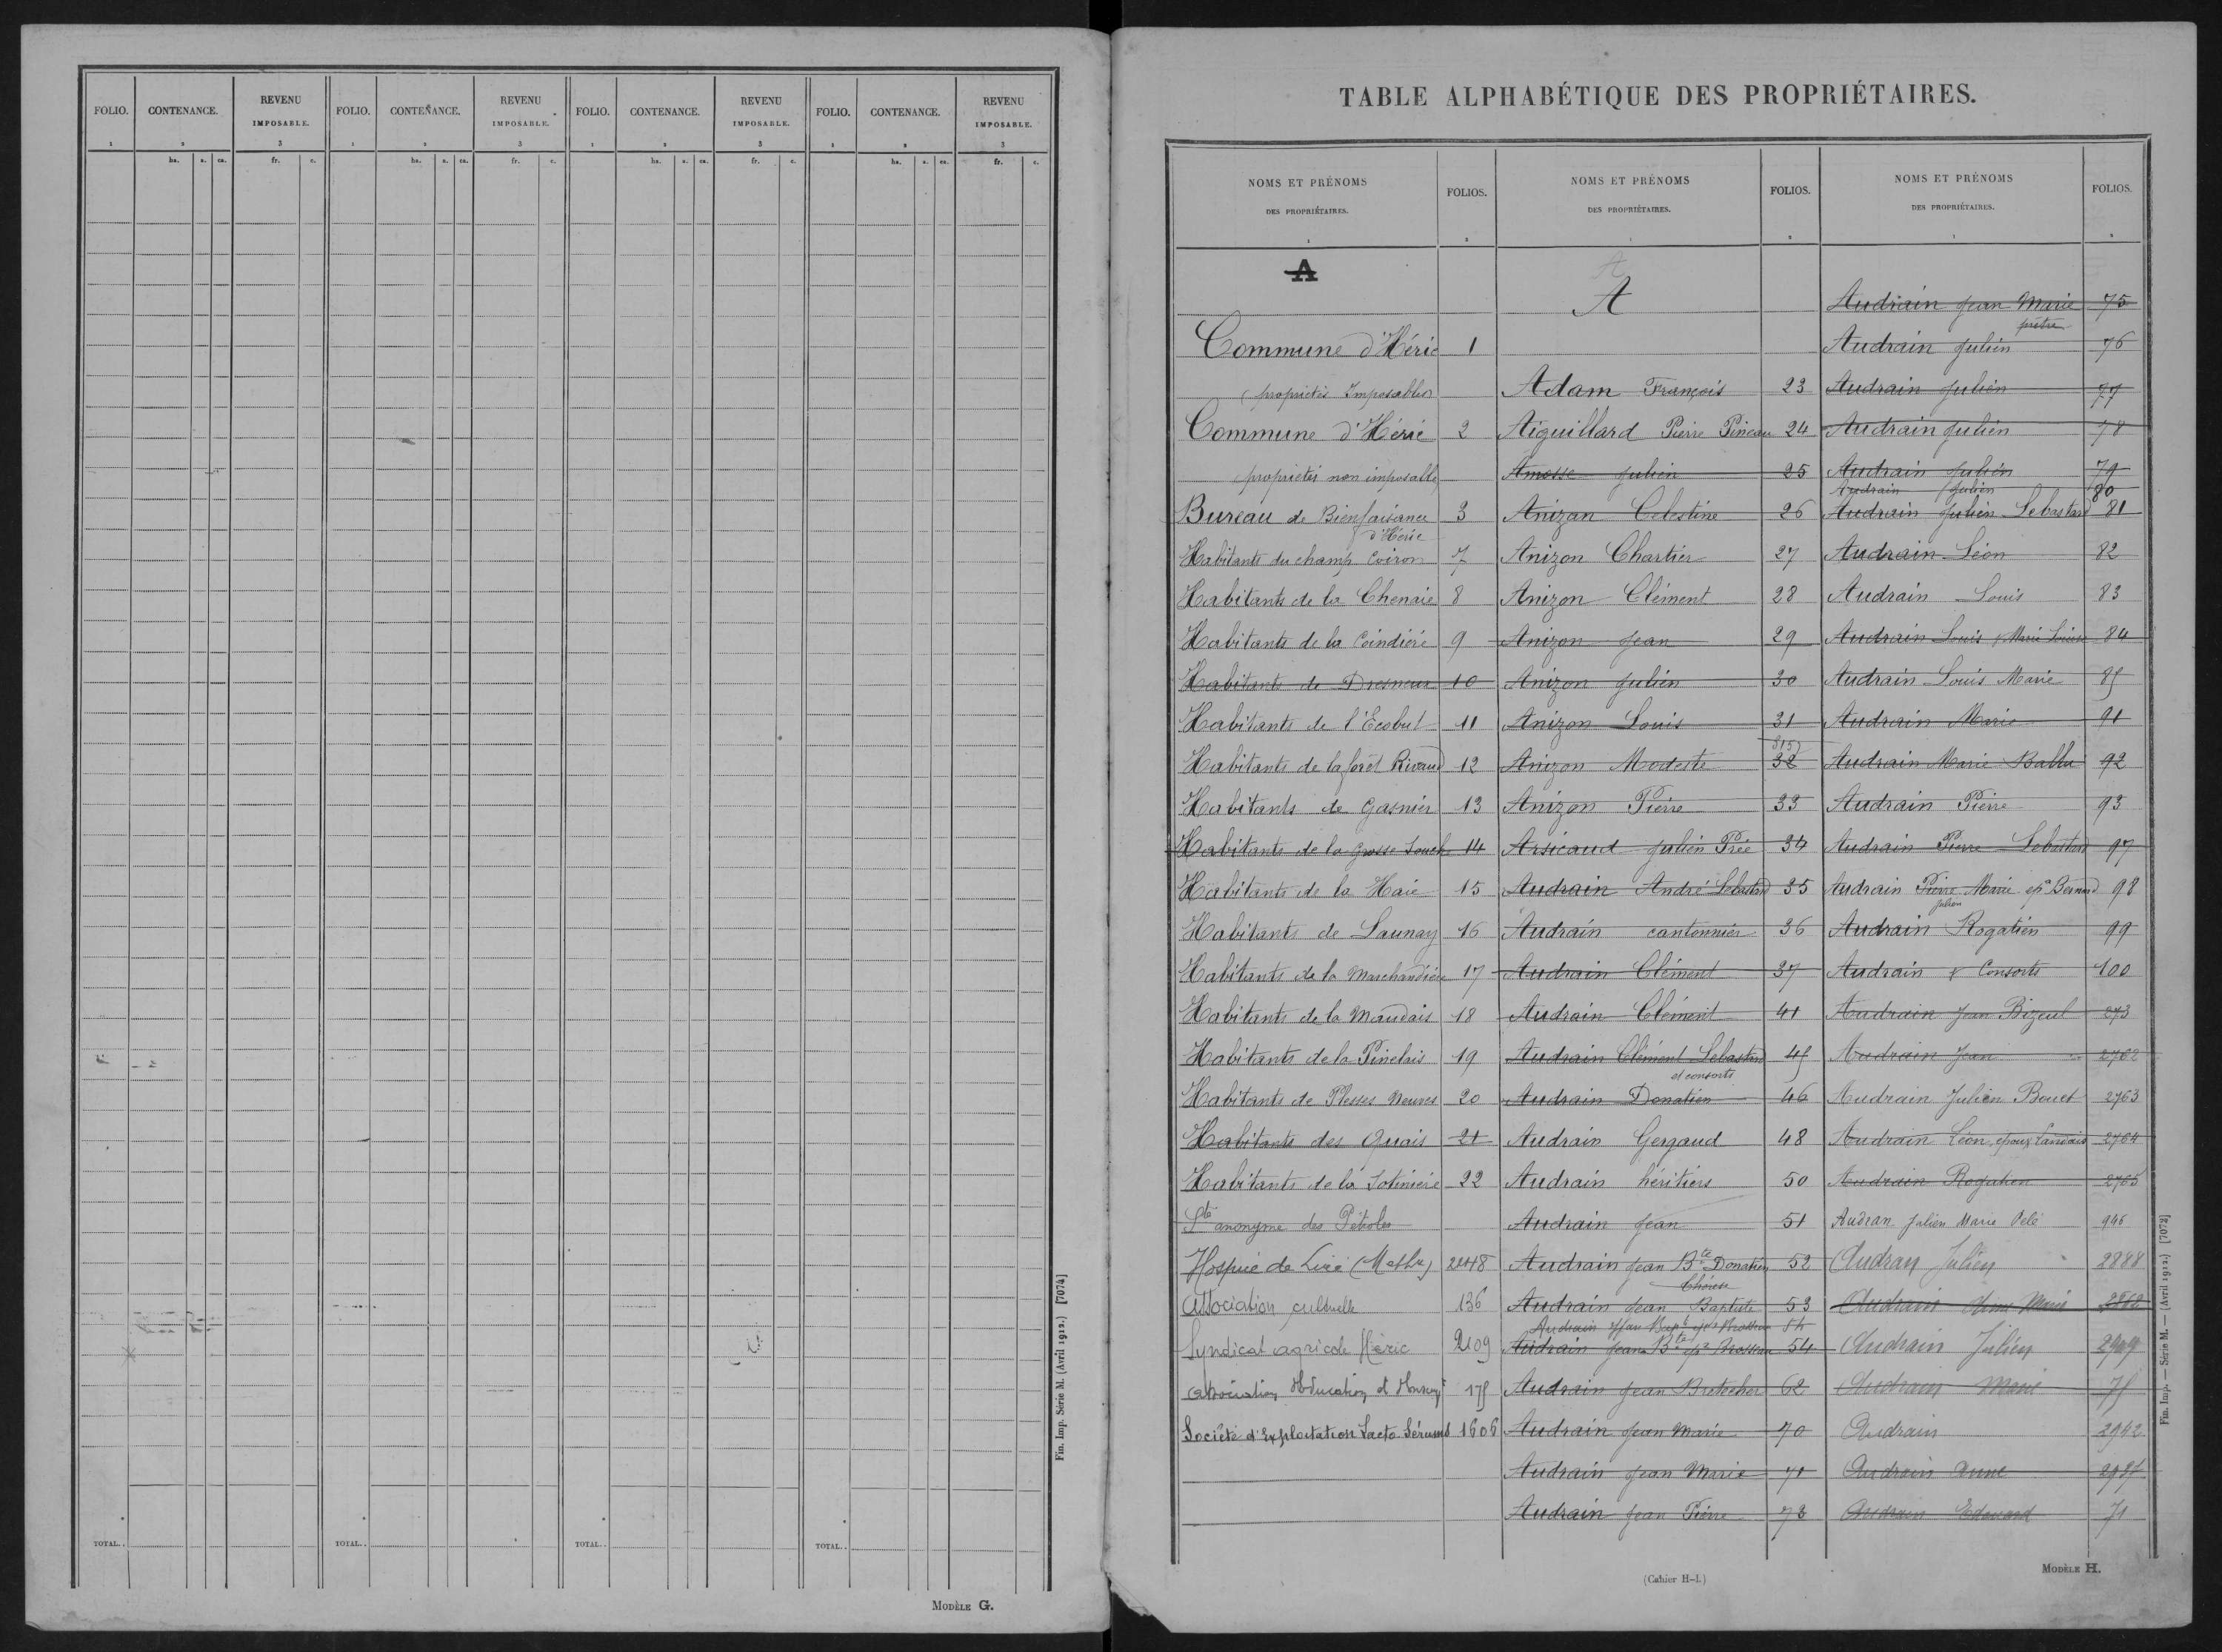 FOLIO. CONTENANCE. REVENU IMPOSABLE. FOLIO. CONTENANCE. REVENU IMPOSABLE. FOLIO. CONTENANCE. REVENU IMPOSABLE. FOLIO. CONTENANCE. REVENU IMPOSABLE.
1 2 3 1 2 3 1 2 3 1 2 3
ha. a. ca. fr. c. ha. a. ca. fr. c. ha. a. ca. fr. c. ha. a. ca. fr. c.
TOTAL.. TOTAL.. TOTAL.. TOTAL..
Fin. Imp. Série M. (Avril 1912.) [7074]
MODÈLE G.
TABLE ALPHABÉTIQUE DES PROPRIÉTAIRES.
NOMS ET PRÉNOMS DES PROPRIÉTAIRES. FOLIOS.
1 2
A
Commune d'Héric 1
(propriétés Imposables)
Commune d'Héric 2
propriétés non imposables
Bureau de Bienfaisance 3
d'Héric
Habitants du champ Coiron 7
Habitants de la Chenaie 8
Habitants de la Coindière 9
Habitants de Dresneux 10
Habitants de l'Ecobut 11
Habitants de la forêt Rivaud 12
Habitants de Gasnier 13
Habitants de la Grosse Souche 14
Habitants de la Haie 15
Habitants de Launay 16
Habitants de la Marchandière 17
Habitants de la Maudais 18
Habitants de la Pinelais 19
Habitants de Plesses Neuves 20
Habitants des Quais 21
Habitants de la Sotinière 22
Sté anonyme des Pétroles
Hospice de Liré 2448
Association cultuelle 136
Syndicat agricole Héric 2109
Association d'Education et 175
Société d'Exploitation Lacto Sérums 1606
NOMS ET PRÉNOMS DES PROPRIÉTAIRES. FOLIOS.
1 2
A
A
Adam François 23
Aiguillard Pierre Pineau 24
Amosse Julien 25
Anizan Celestine 26
Anizon Chartier 27
Anizon Clément 28
Anizon Jean 29
Anizon Julien 30
Anizon Louis 31
Anizon Modeste 32
Anizon Pierre 33
Arsicaud Julien Priée 34
Audrain André Lebastard 35
Audrain cantonnier 36
Audrain Clément 37
Audrain Clément 41
Audrain Clément Lebastard 45
et consorts
Audrain Donatien 46
Audrain Gergaud 48
Audrain héritiers 50
Audrain Jean 51
Audrain Jean Bte Donatien 52
Audrain Jean Baptiste 53
Audrain Jean Bapt. Brosseau 54
Audrain Jean Bte ép. Brosseau 54
Audrain Jean Bretecher 62
Audrain Jean Marie 70
Audrain Jean Marie 71
Audrain Jean Pierre 73
NOMS ET PRÉNOMS DES PROPRIÉTAIRES. FOLIOS.
1 2
Audrain Jean Marie 75
prêtre
Audrain Julien 76
Audrain Julien 77
Audrain Julien 78
Audrain Julien 79
Audrain Julien 80
Audrain Julien Lebastard 81
Audrain Léon 82
Audrain Louis 83
Audrain Louis & Marie Louise 84
Audrain Louis Marie 85
Audrain Marie 91
Audrain Marie Bablu 92
Audrain Pierre 93
Audrain Pierre Lebastard 97
Audrain Pierre Marie ép. Bernard 98
Julien
Audrain Rogatien 99
Audrain & Consorts 100
Audrain Jean Bizeul 273
Audrain Jean 2762
Audrain Julien Bouet 2763
Audrain Léon, époux Landais 2764
Audrain Rogatien 2765
Audran Julien Marie Pelé 946
Audran Julien 2888
Audrain Aimé Marie 2862
Audrain Julien 2909
Audrain Marie 75
Audrain 2942
Audrain Anne
Audrain Edouard 71
(Cahier H-1.)
MODÈLE H.
Fin. Imp. — Série M. — (Avril 1912.) [7072]